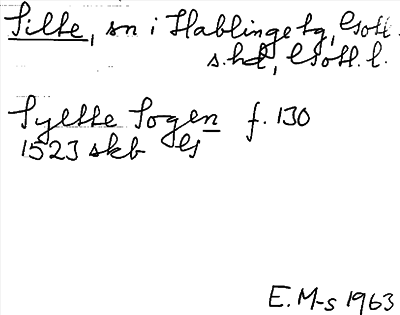 Silte, sn i Hablinge tg, Gotl.
s. hd, Gotl. l.
Syltte Sogen f. 130
1523 skb G
E. M-s 1963